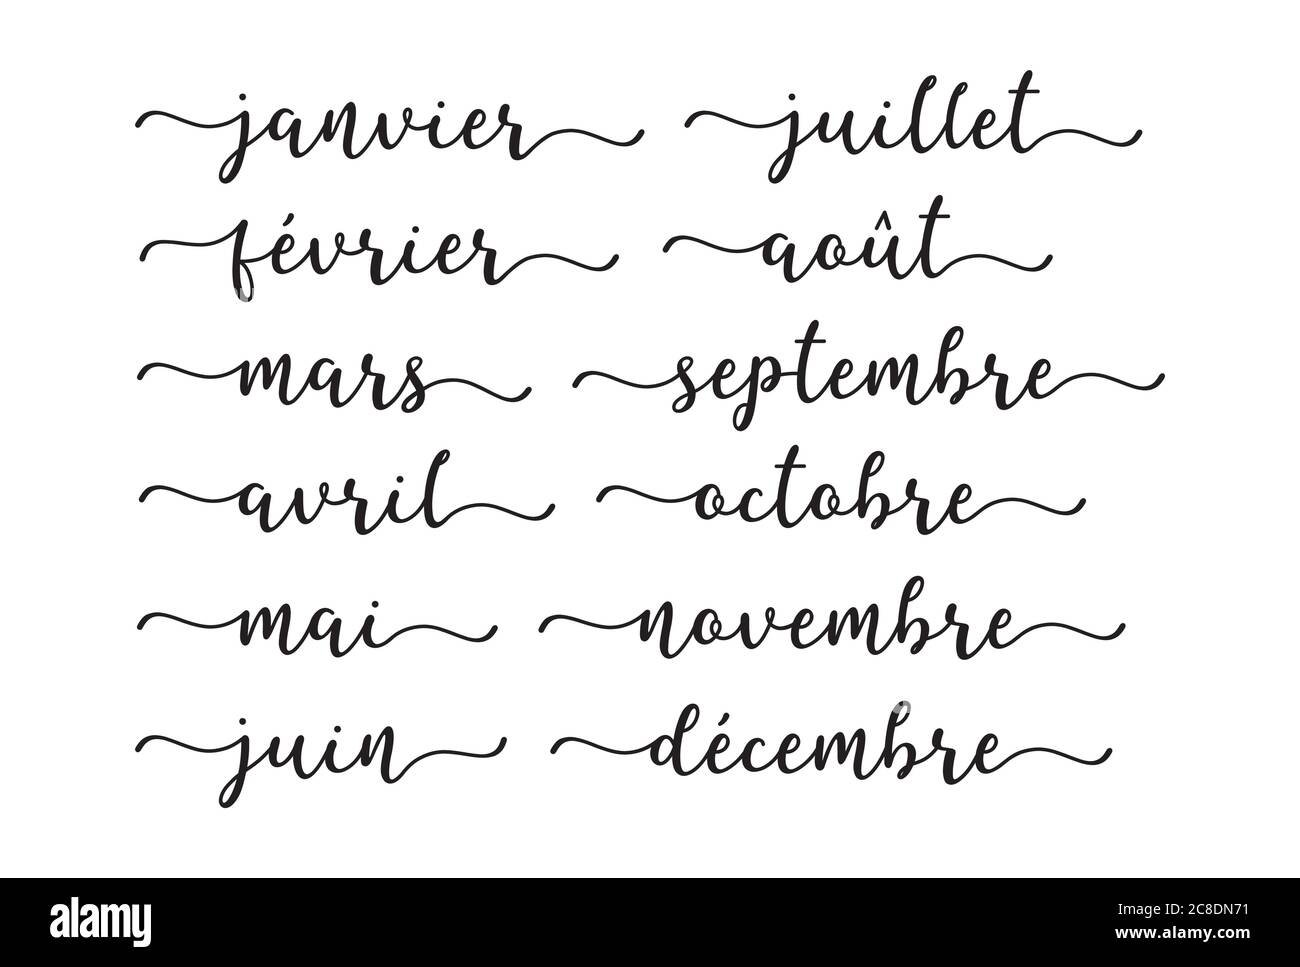 janvier
février
mars
avril
mai
juin
juillet
août
septembre
octobre
novembre
décembre
alamy
Image ID: 2C8DN71
www.alamy.com